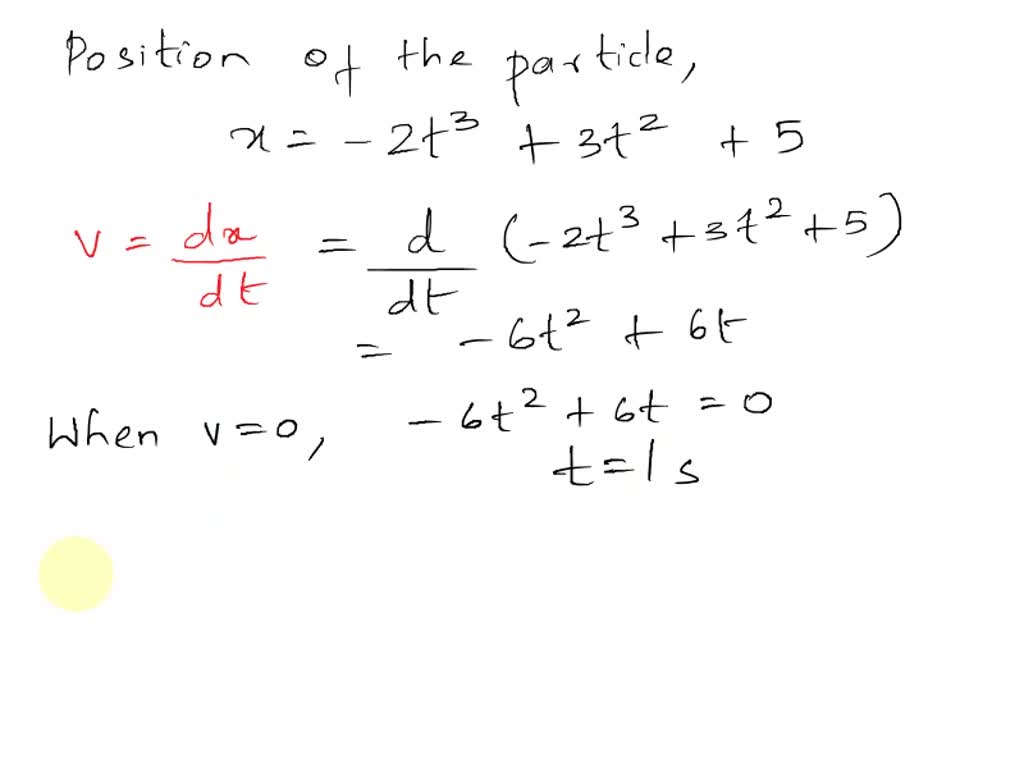 Position of the particle,
x = -2t³ + 3t² + 5
v = dx/dt = d/dt (-2t³ + 3t² + 5)
= -6t² + 6t
When v=0, -6t² + 6t = 0
t=1 s